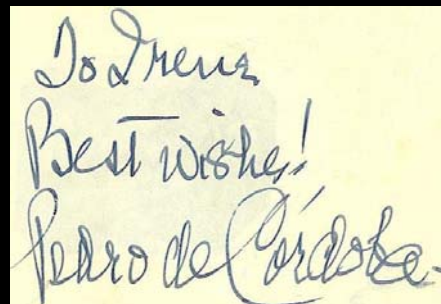 To Irena
Best wishes!
Pedro de Córdoba